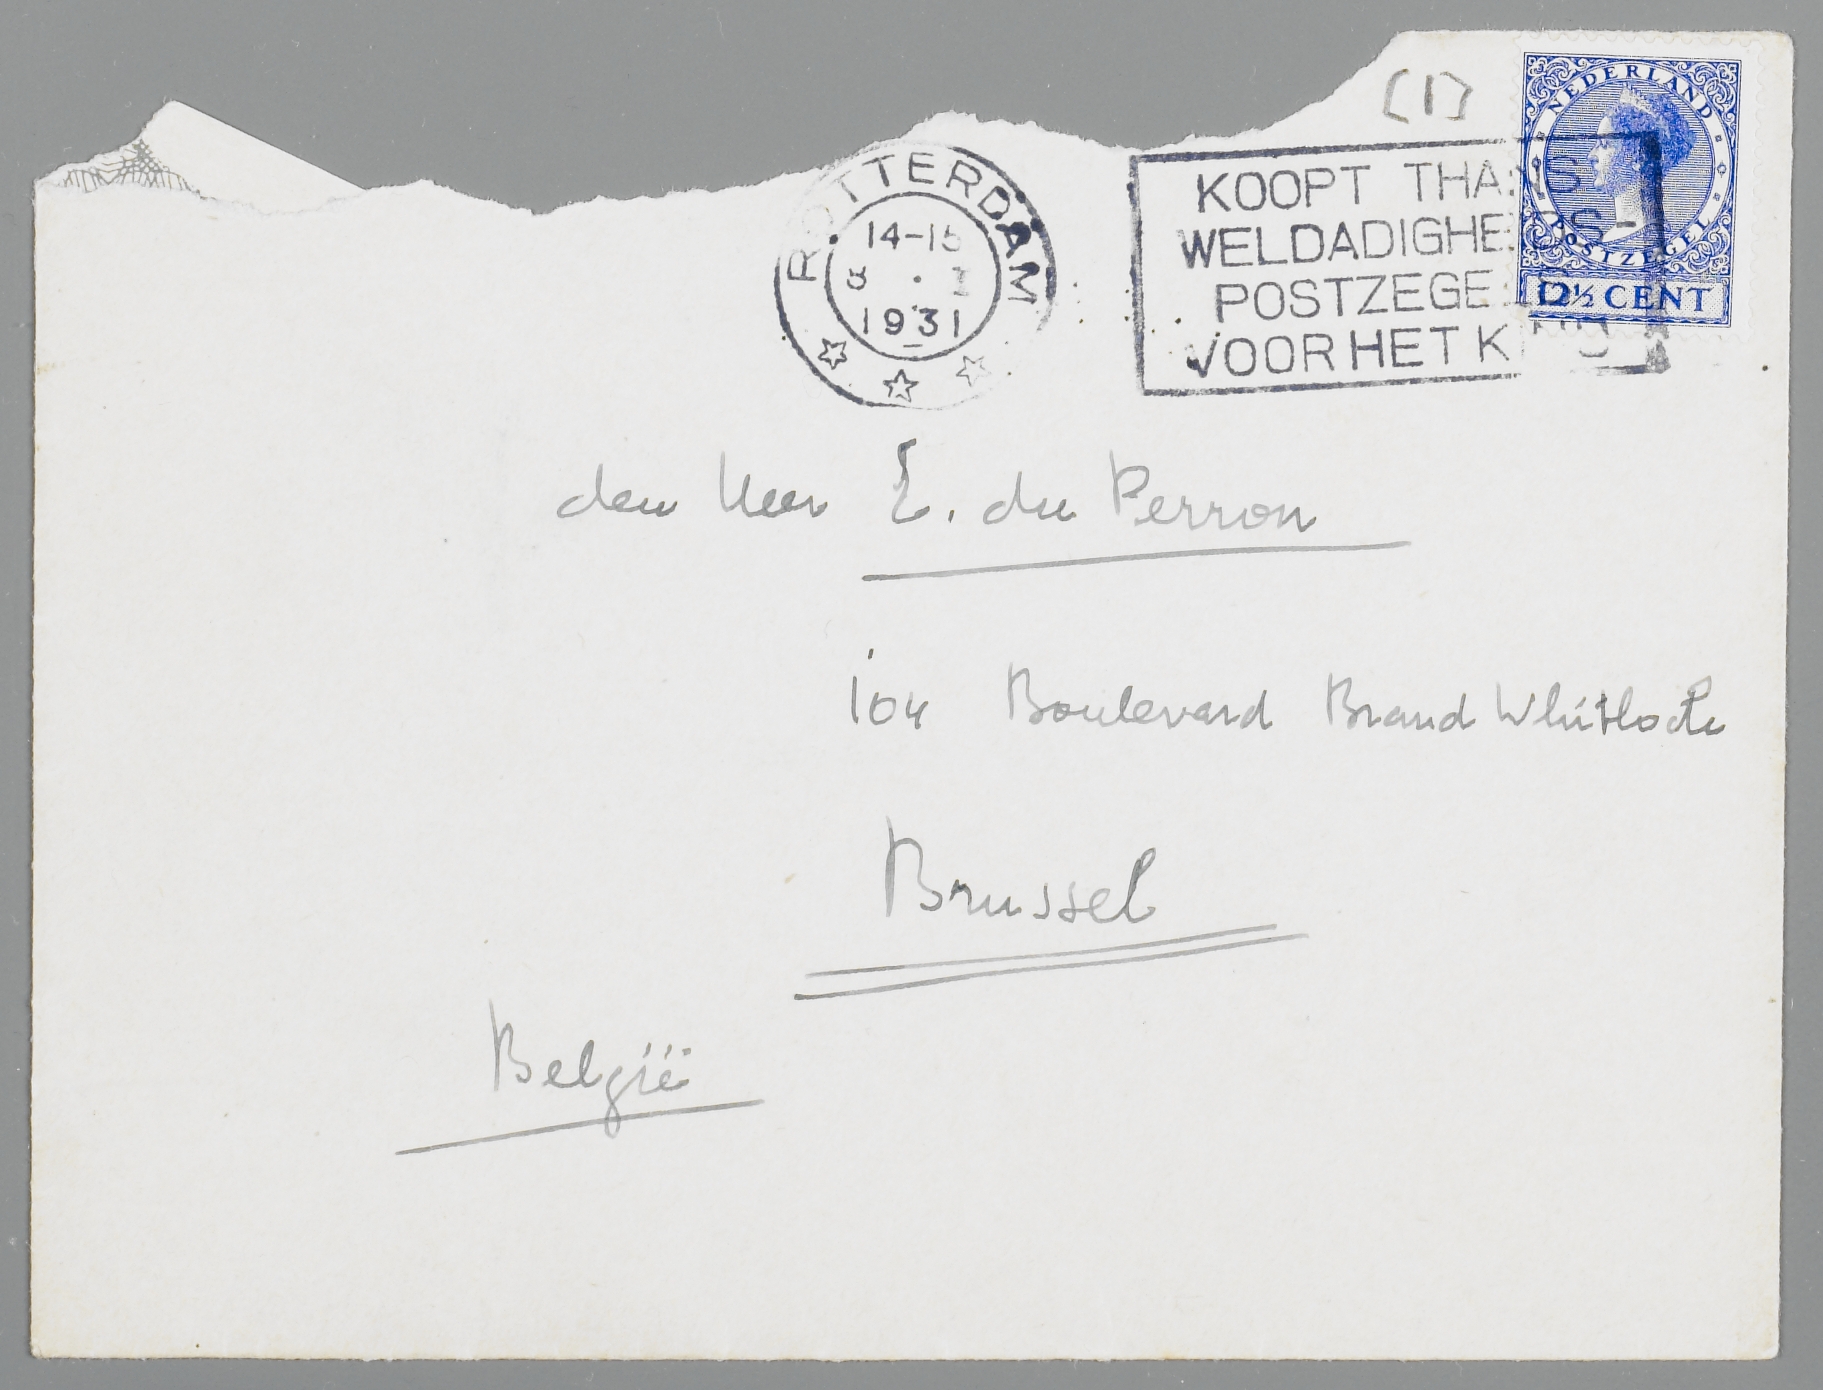 [1]
NEDERLAND
POSTZEGEL
12½ CENT
ROTTERDAM
14-15
3 . I
1931
KOOPT THANS
WELDADIGHEIDS-
POSTZEGELS
VOOR HET KIND
den Heer E. du Perron
104 Boulevard Brand Whitlock
Brussel
België